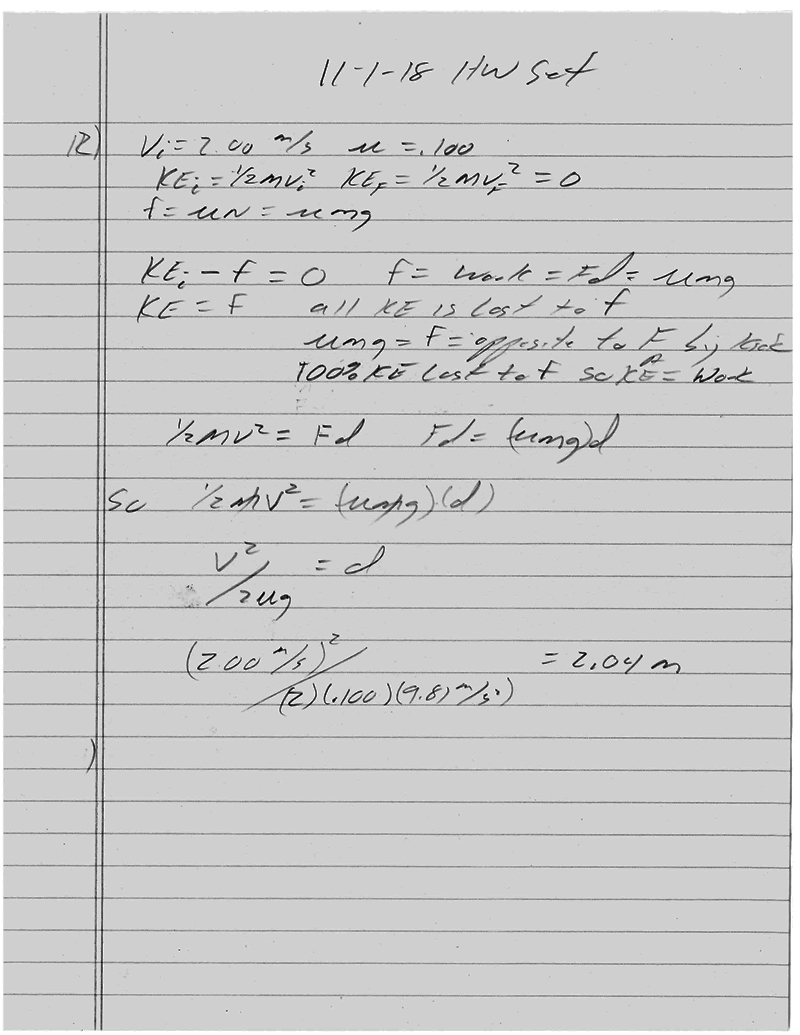 11-1-18 HW Set
12) Vi = 2.00 m/s  u = .100
KEi = 1/2 mvi²  KEF = 1/2 mvF² = 0
f = uN = umg
KEi - f = 0  f = Work = Fd = umg
KE = f  all KE is lost to f
umg = f = opposite to F by
100% KE Lost to f so KE = Work
1/2 mv² = Fd  Fd = (umg)d
So 1/2 mv² = (umg)(d)
V²/2ug = d
(2.00 m/s)²/(2)(.100)(9.8 m/s²) = 2.04 m
)